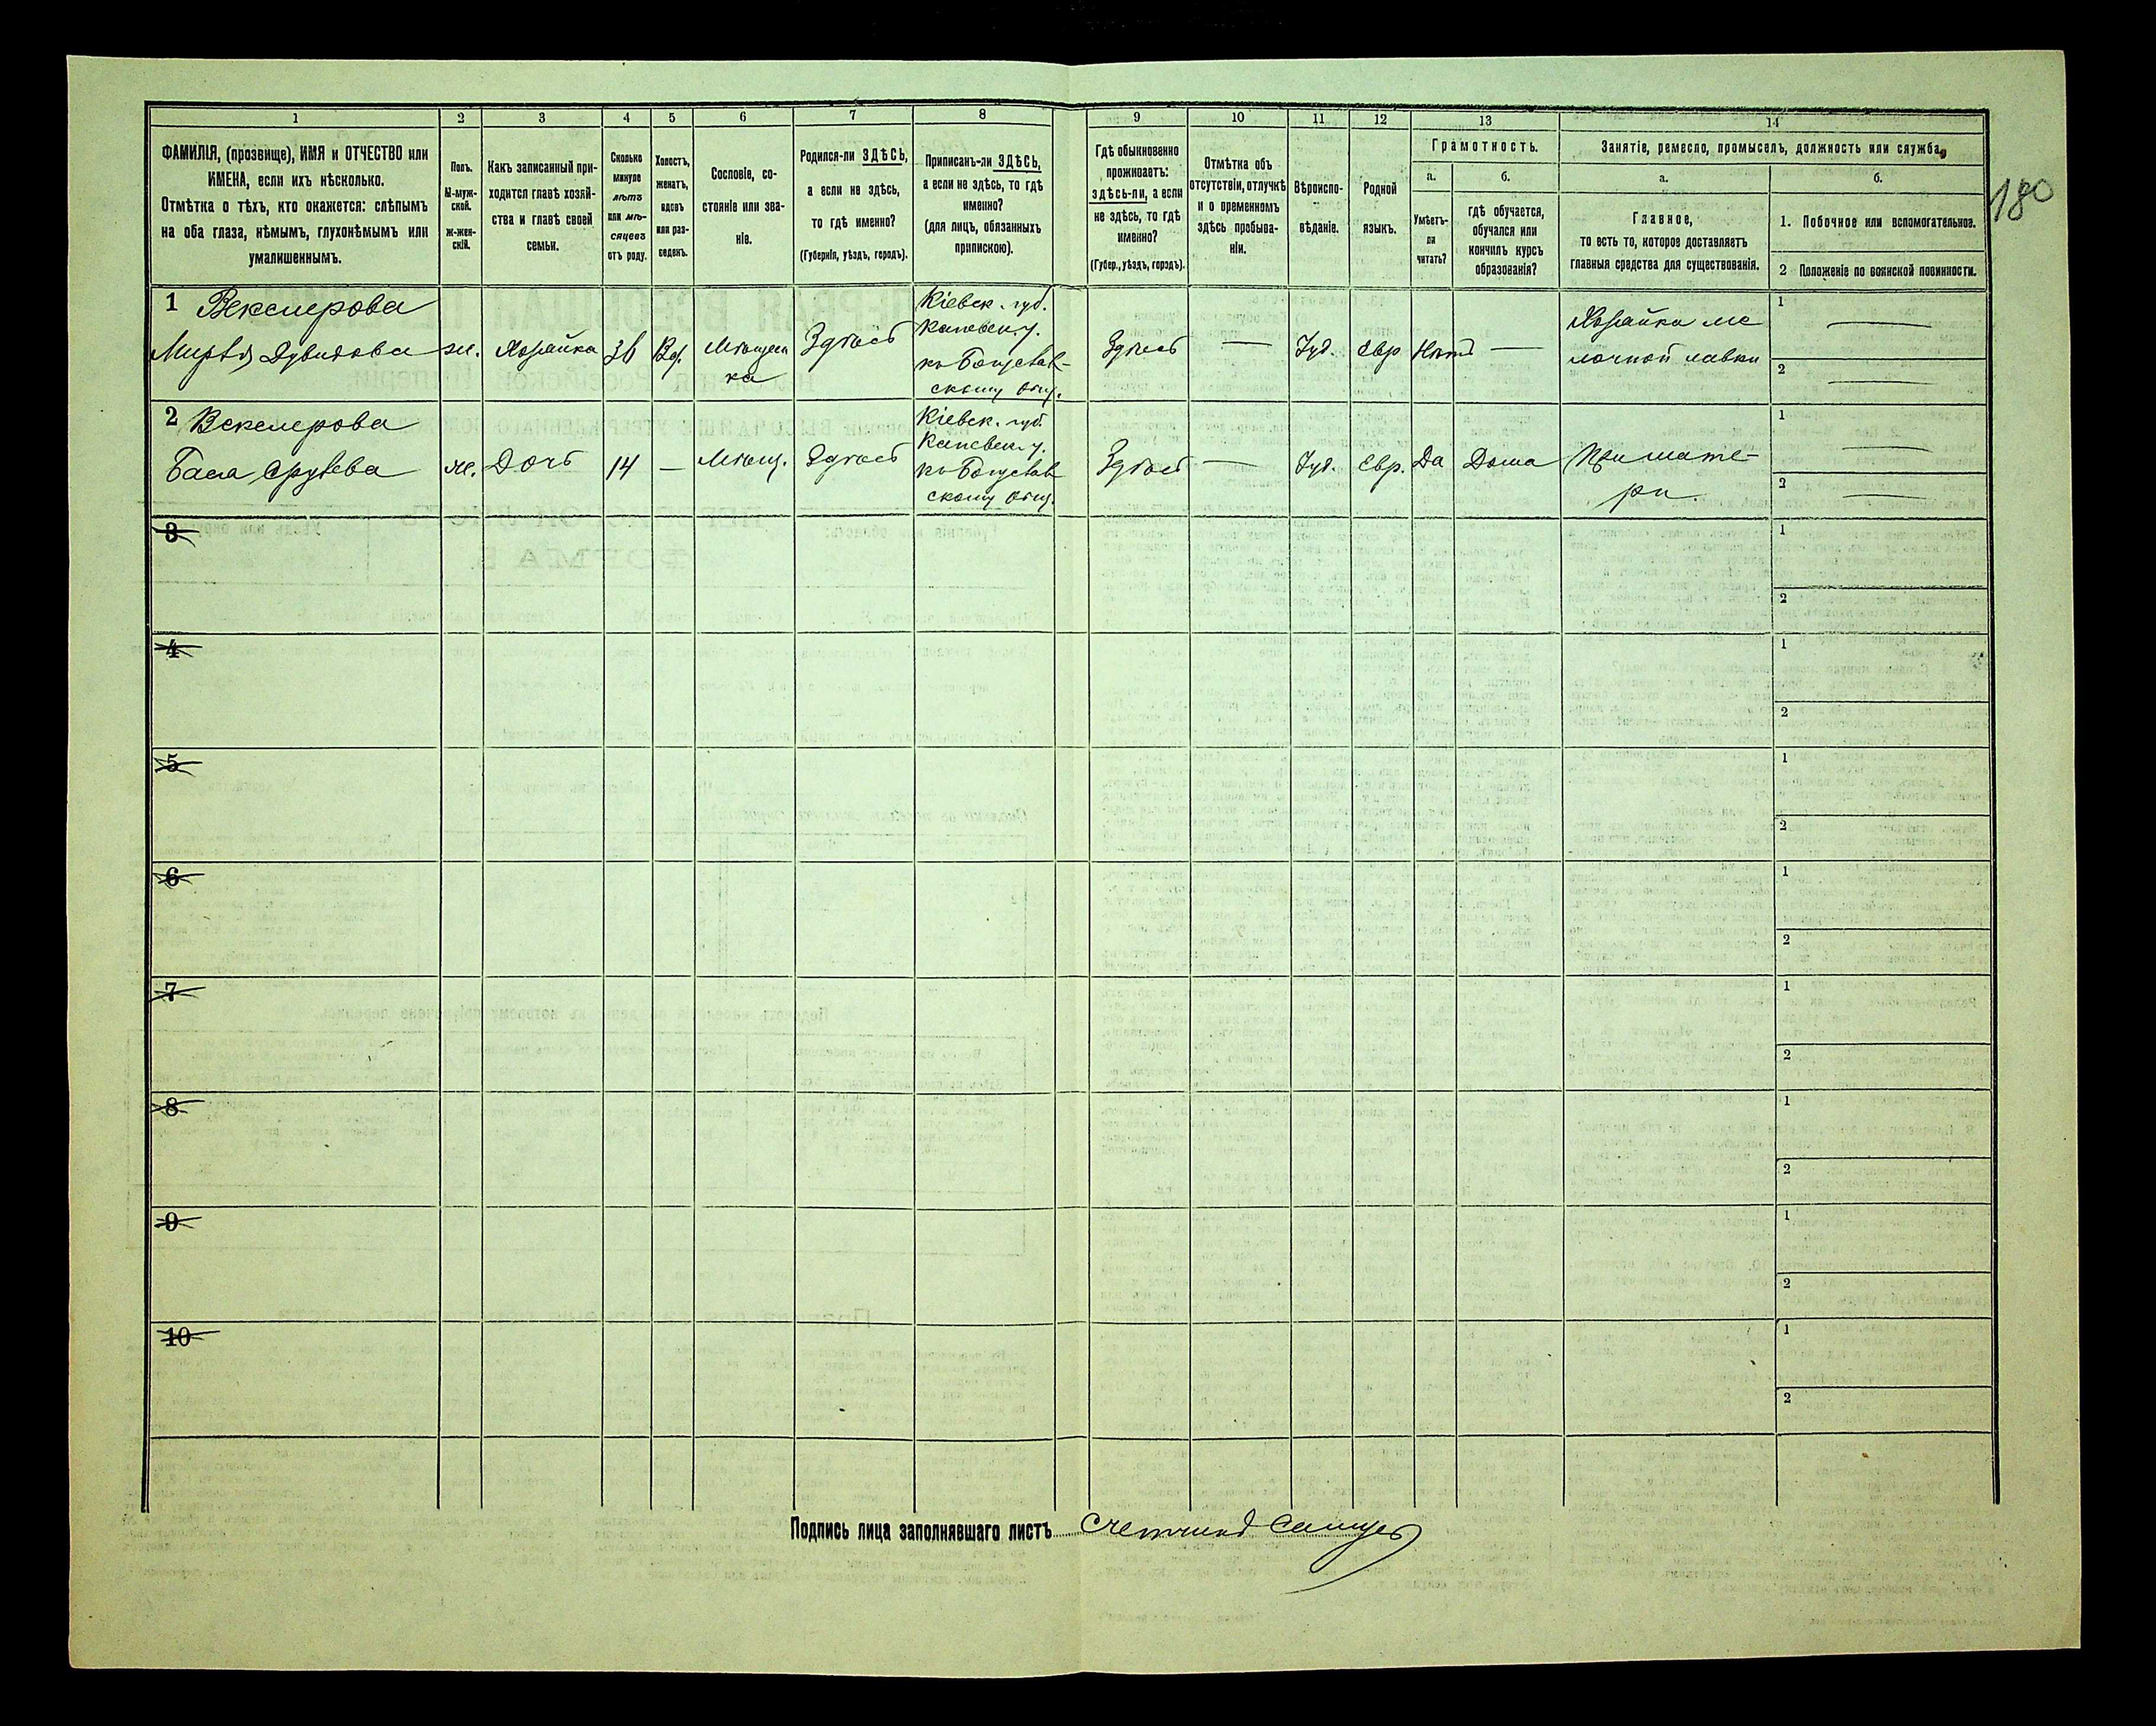 1 2 3 4 5 6 7 8 9 10 11 12 13 14
ФАМИЛІЯ, (прозвище), ИМЯ и ОТЧЕСТВО или
ИМЕНА, если ихъ нѣсколько.
Отмѣтка о тѣхъ, кто окажется: слѣпымъ
на оба глаза, нѣмымъ, глухонѣмымъ или
умалишеннымъ.
Полъ.
М-муж-
ской.
ж-жен-
скій.
Какъ записанный при-
ходится главѣ хозяй-
ства и главѣ своей
семьи.
Сколько
минуло
лѣтъ
или мѣ-
сяцевъ
отъ роду.
Холостъ,
женатъ,
вдовъ
или раз-
веденъ.
Сословіе, со-
стояніе или зва-
ніе.
Родился-ли ЗДѢСЬ,
а если не здѣсь,
то гдѣ именно?
(Губернія, уѣздъ, городъ).
Приписанъ-ли ЗДѢСЬ,
а если не здѣсь, то гдѣ
именно?
(для лицъ, обязанныхъ
припискою).
Гдѣ обыкновенно
проживаетъ:
здѣсь-ли, а если
не здѣсь, то гдѣ
именно?
(Губер., уѣздъ, городъ).
Отмѣтка объ
отсутствіи, отлучкѣ
и о временномъ
здѣсь пребыва-
ніи.
Вѣроиспо-
вѣданіе.
Родной
языкъ.
Грамотность.
а.
Умѣетъ-
ли
читать?
б.
гдѣ обучается,
обучался или
кончилъ курсъ
образованія?
Занятіе, ремесло, промыселъ, должность или служба.
а.
Главное,
то есть то, которое доставляетъ
главныя средства для существованія.
б.
1. Побочное или вспомогательное.
2 Положеніе по воинской повинности.
180
1 Векслерова
Мирля Дувидова
ж.
Хозяйка
36
Вд.
Мѣщан
ка
Здѣсь
Кіевск. губ.
Каневск. у.
къ Богуслав-
скому общ.
Здѣсь
—
Іуд.
Евр
Нѣтъ
—
Хозяйка ме
лочной лавки
1 —
2 —
2 Векслерова
Бася Срулева
ж.
Дочь
14
—
Мѣщ.
Здѣсь
Кіевск. губ.
Каневск. у.
къ Богуслав
скому общ.
Здѣсь
—
Іуд.
Евр.
Да
Дома
При мате-
ри.
1 —
2 —
3
1
2
4
1
2
5
1
2
6
1
2
7
1
2
8
1
2
9
1
2
10
1
2
Подпись лица заполнявшаго листъ Счетчикъ